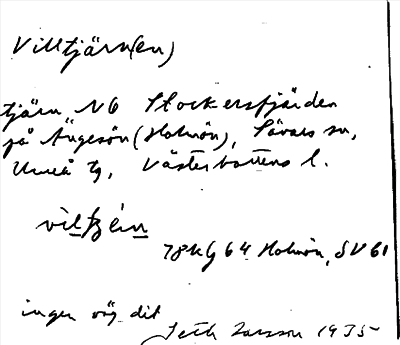 Villtjärn(en)
tjärn N6 Stockersfjärden
på Ängesön (Holmön), Sävars sn,
Umeå tg, Västerbottens l.
78kg 64 Holmön, SV 61
ingen väg dit
Seth Larsson 1935